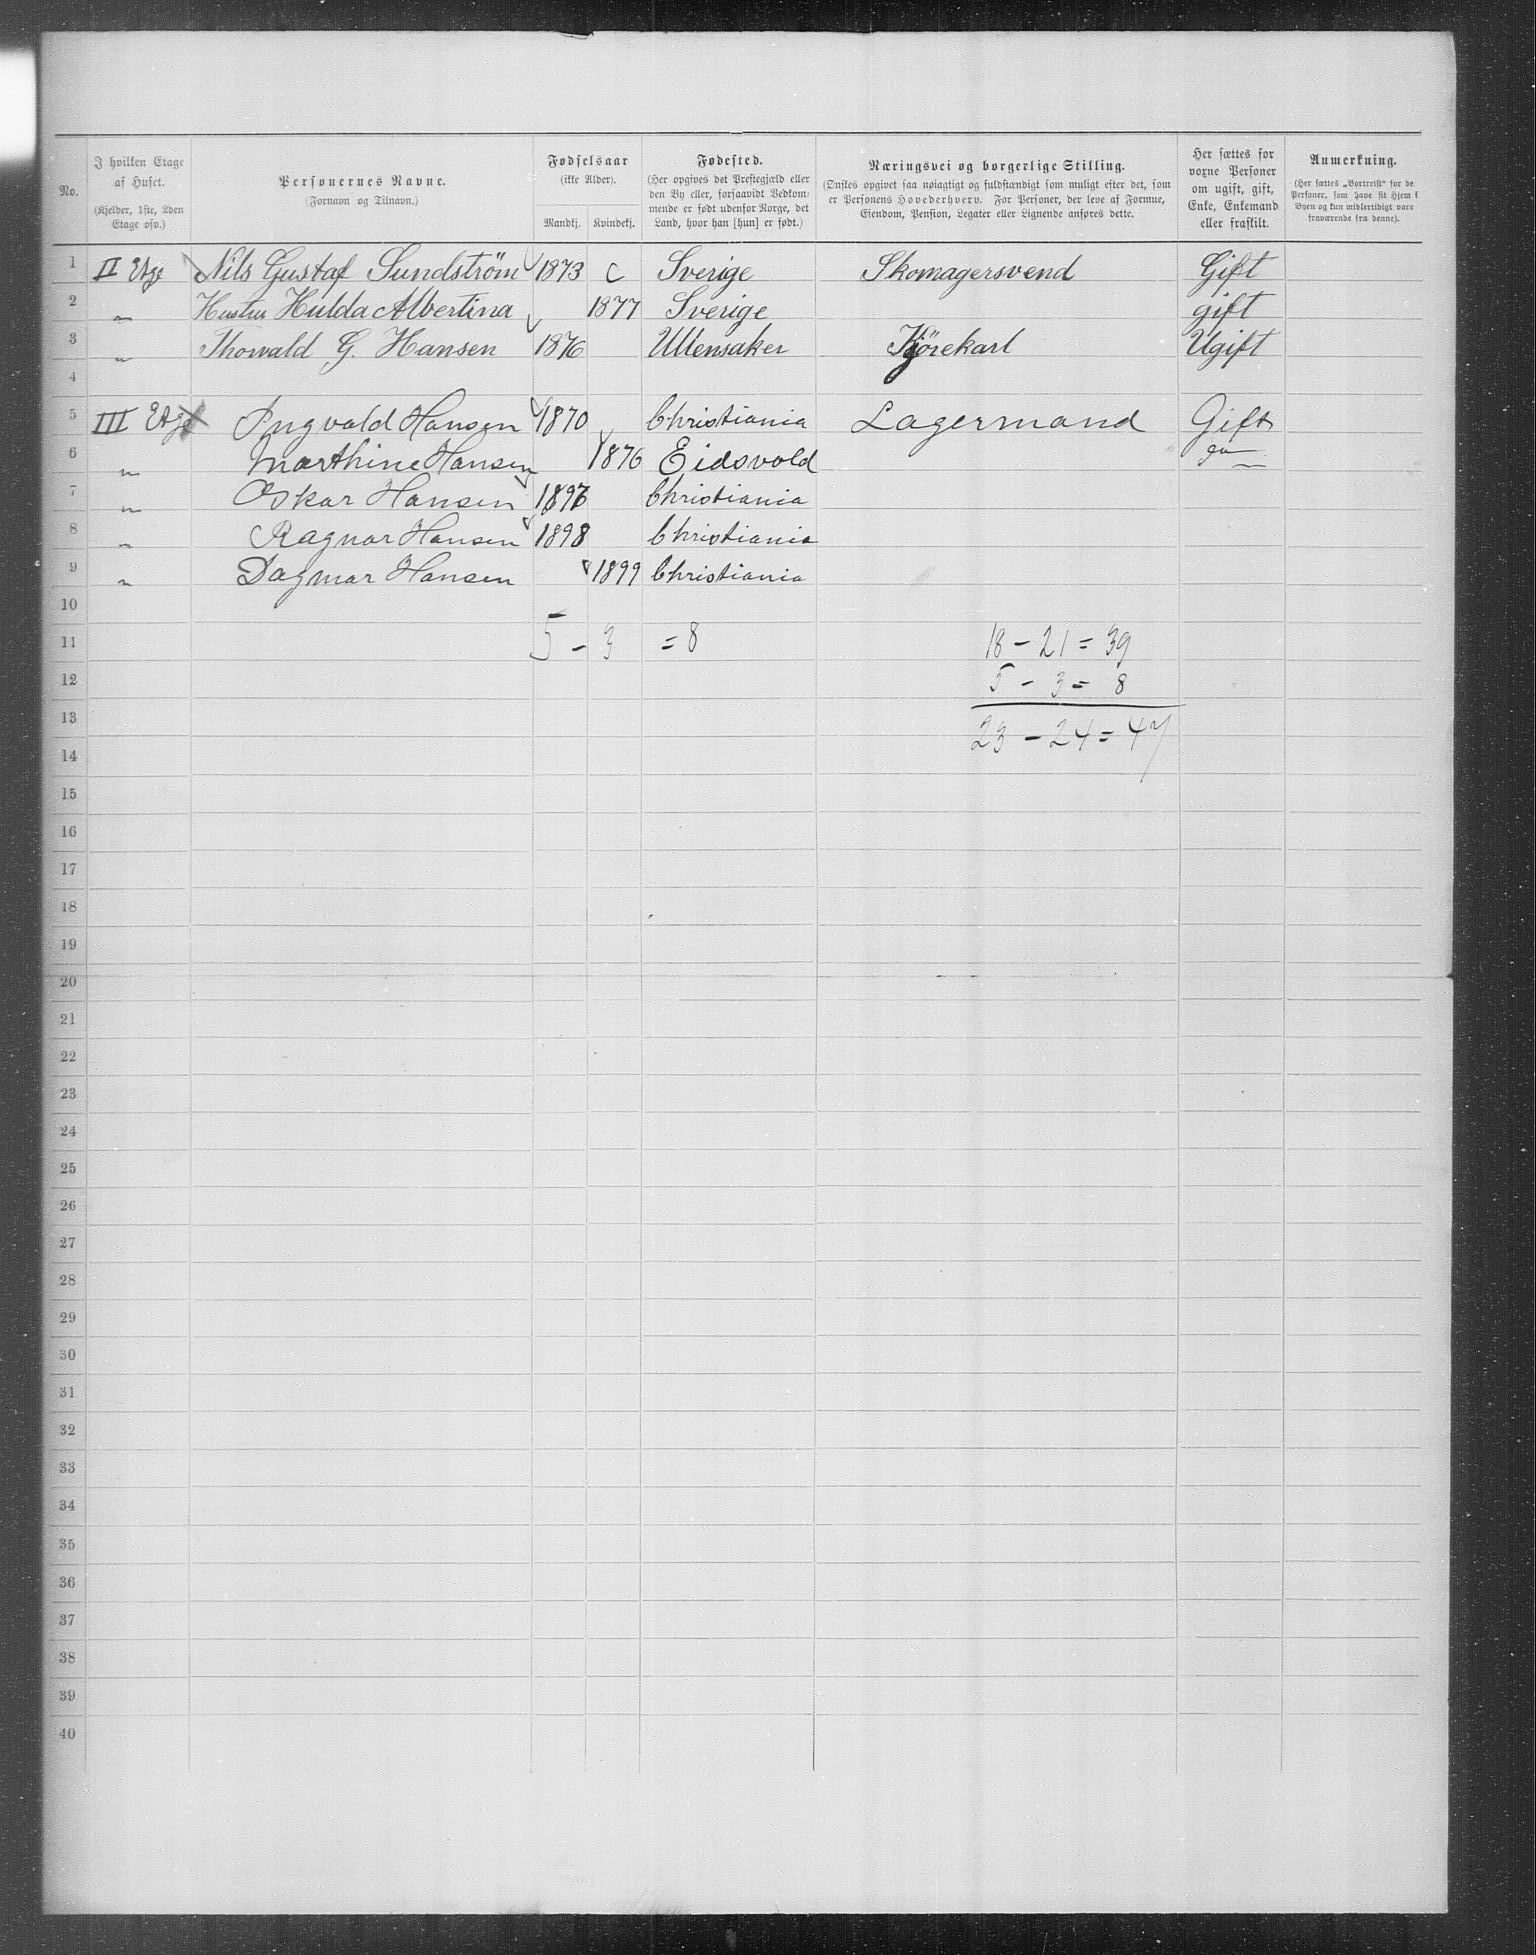 No. | I hvilken Etage af Huset. (Kjelder, 1ste, 2den Etage osv.) | Personernes Navne. (Fornavn og Tilnavn.) | Fødselsaar (ikke Alder). Mandkj. | Kvindekj. | Fødested. (Her opgives det Prestegjæld eller den By eller, forsaavidt Vedkommende er født udenfor Norge, det Land, hvor han [hun] er født.) | Næringsvei og borgerlige Stilling. (Ønskes opgivet saa nøiagtigt og fuldstændigt som muligt efter det, som er Personens Hovederhverv. For Personer, der leve af Formue, Eiendom, Pension, Legater eller Lignende anføres dette. | Her sættes for voxne Personer om ugift, gift, Enke, Enkemand eller fraskilt. | Anmerkning. (Her sættes „Bortreist“ for de Personer, som have sit Hjem i Byen og kun midlertidigt vare fraværende fra denne).
1 II Etge Nils Gustaf Sundström 1873 c Sverige Skomagersvend Gift
2 " Hustru Hulda Albertina 1877 Sverige gift
3 " Thorvald G. Hansen 1876 Ullensaker Kjörekarl Ugift
4
5 III Etge Ingvald Hansen 1870 Christiania Lagermand Gift
6 " Marthine Hansen 1876 Eidsvold
7 " Oskar Hansen 1897 Christiania
8 " Ragnar Hansen 1898 Christiania
9 " Dagmar Hansen 1899 Christiania
10
11 5 - 3 = 8 18 - 21 = 39
12 5 - 3 = 8
13 23 - 24 = 47
14
15
16
17
18
19
20
21
22
23
24
25
26
27
28
29
30
31
32
33
34
35
36
37
38
39
40